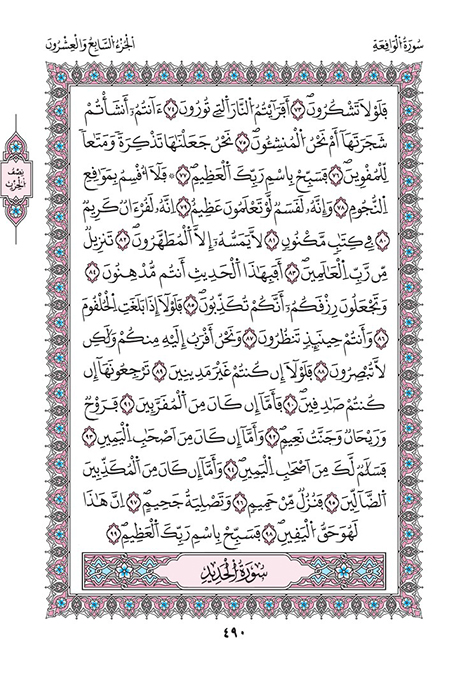 سُورَةُ الْوَاقِعَةِ
الْجُزْءُ السَّابِعُ وَالْعِشْرُونَ
فَلَوْلَا تَشْكُرُونَ ٧٣ أَفَرَأَيْتُمُ النَّارَ الَّتِي تُورُونَ ٧٤ ءَآنتُمُ أَنشَأْتُمْ
شَجَرَتَهَا أَمْ نَحْنُ الْمُنشِئُونَ ٧٥ نَحْنُ جَعَلْنَاهَا تَذْكِرَةً وَمَتَاعًا
لِّلْمُقْوِينَ ٧٦ فَسَبِّحْ بِاسْمِ رَبِّكَ الْعَظِيمِ ٧٧ فَلَا أُقْسِمُ بِمَوَاقِعِ
النُّجُومِ ٧٨ وَإِنَّهُ لَقَسَمٌ لَّوْ تَعْلَمُونَ عَظِيمٌ ٧٩ إِنَّهُ لَقُرْءَانٌ كَرِيمٌ
٨٠ فِي كِتَابٍ مَّكْنُونٍ ٨١ لَّا يَمَسُّهُ إِلَّا الْمُطَهَّرُونَ ٨٢ تَنزِيلٌ
مِّن رَّبِّ الْعَالَمِينَ ٨٣ أَفَبِهَذَا الْحَدِيثِ أَنتُم مُّدْهِنُونَ ٨٤
وَتَجْعَلُونَ رِزْقَكُمُ أَنَّكُمْ تُكَذِّبُونَ ٨٥ فَلَوْلَا إِذَا بَلَغَتِ الْحُلْقُومَ
٨٦ وَأَنتُمْ حِينَئِذٍ تَنظُرُونَ ٨٧ وَنَحْنُ أَقْرَبُ إِلَيْهِ مِنكُمْ وَلَكِن
لَّا تُبْصِرُونَ ٨٨ فَلَوْلَا إِن كُنتُمْ غَيْرَ مَدِينِينَ ٨٩ تَرْجِعُونَهَا إِن
كُنتُمْ صَادِقِينَ ٩٠ فَأَمَّا إِن كَانَ مِنَ الْمُقَرَّبِينَ ٩١ فَرَوْحٌ
وَرَيْحَانٌ وَجَنَّتُ نَعِيمٍ ٩٢ وَأَمَّا إِن كَانَ مِنْ أَصْحَابِ الْيَمِينِ ٩٣
فَسَلَامٌ لَّكَ مِنْ أَصْحَابِ الْيَمِينِ ٩٤ وَأَمَّا إِن كَانَ مِنَ الْمُكَذِّبِينَ
الضَّالِّينَ ٩٥ فَنُزُلٌ مِّنْ حَمِيمٍ ٩٦ وَتَصْلِيَةُ جَحِيمٍ ٩٧ إِنَّ هَذَا
لَهُوَ حَقُّ الْيَقِينِ ٩٨ فَسَبِّحْ بِاسْمِ رَبِّكَ الْعَظِيمِ ٩٩
سُورَةُ الْحَدِيدِ
نِصْفُ
الْحِزْبِ
٤٩٠